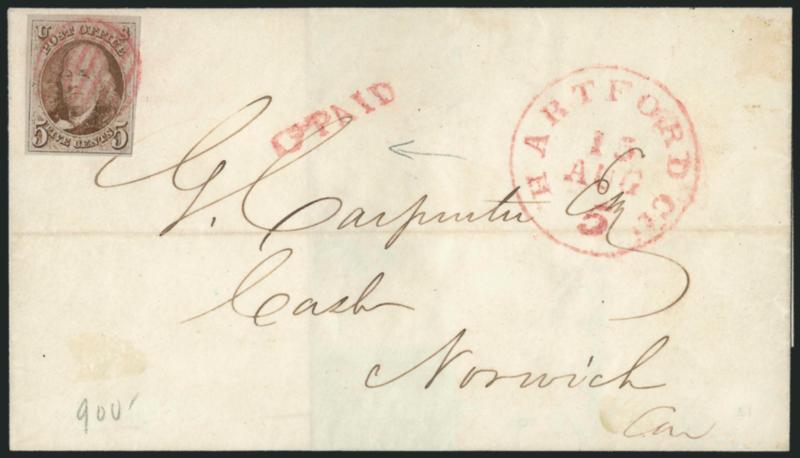 U S
POST OFFICE
5 FIVE CENTS 5
PAID
HARTFORD Ct.
15
AUG
5
G. Carpenter Esq
Cash
Norwich
Con
900